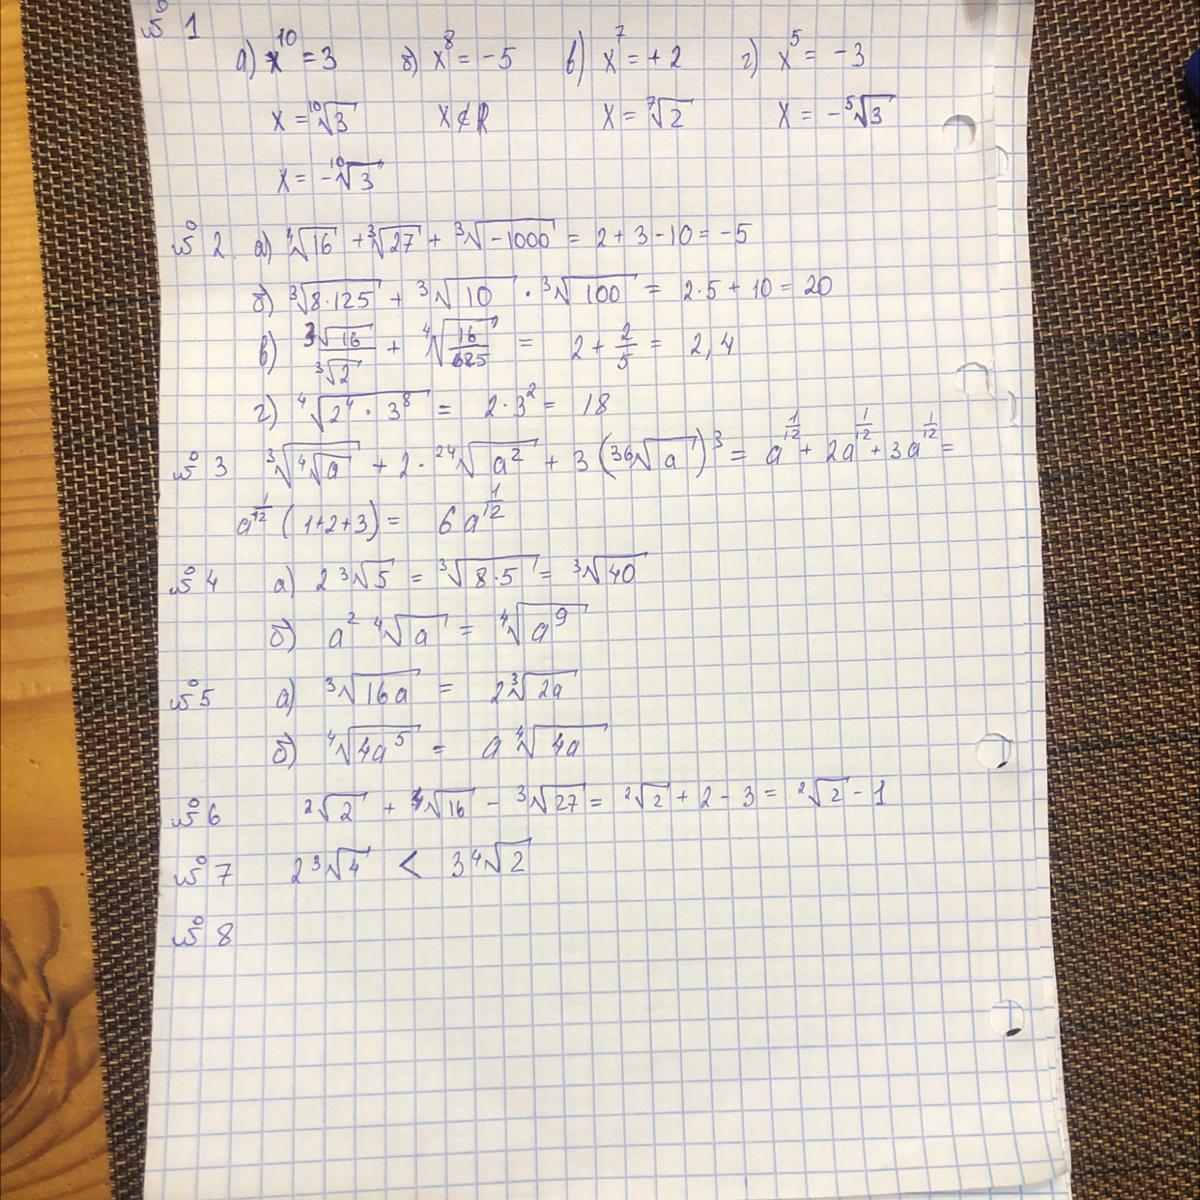 № 1
а) x¹⁰ = 3 б) x⁸ = -5 в) x⁷ = +2 г) x⁵ = -3
x = ¹⁰√3 x ∉ R x = ⁷√2 x = -⁵√3
x = -¹⁰√3
№ 2. а) ⁴√16 + ³√27 + ³√-1000 = 2 + 3 - 10 = -5
б) ³√(8·125) + ³√10 · ³√100 = 2·5 + 10 = 20
в) ³√16/³√2 + ⁴√(16/625) = 2 + 2/5 = 2,4
г) ⁴√(2⁴ · 3⁸) = 2·3² = 18
№ 3 ³√(⁴√a) + 2·²⁴√a² + 3(³⁶√a)³ = a^(1/12) + 2a^(1/12) + 3a^(1/12) =
a^(1/12) (1+2+3) = 6a^(1/12)
№ 4 а) 2³√5 = ³√(8·5) = ³√40
б) a² ⁴√a = ⁴√a⁹
№ 5 а) ³√16a = 2³√2a
б) ⁴√4a⁵ = a ⁴√4a
№ 6 ²√2 + ⁴√16 - ³√27 = ²√2 + 2 - 3 = ²√2 - 1
№ 7 2³√4 < 3⁴√2
№ 8